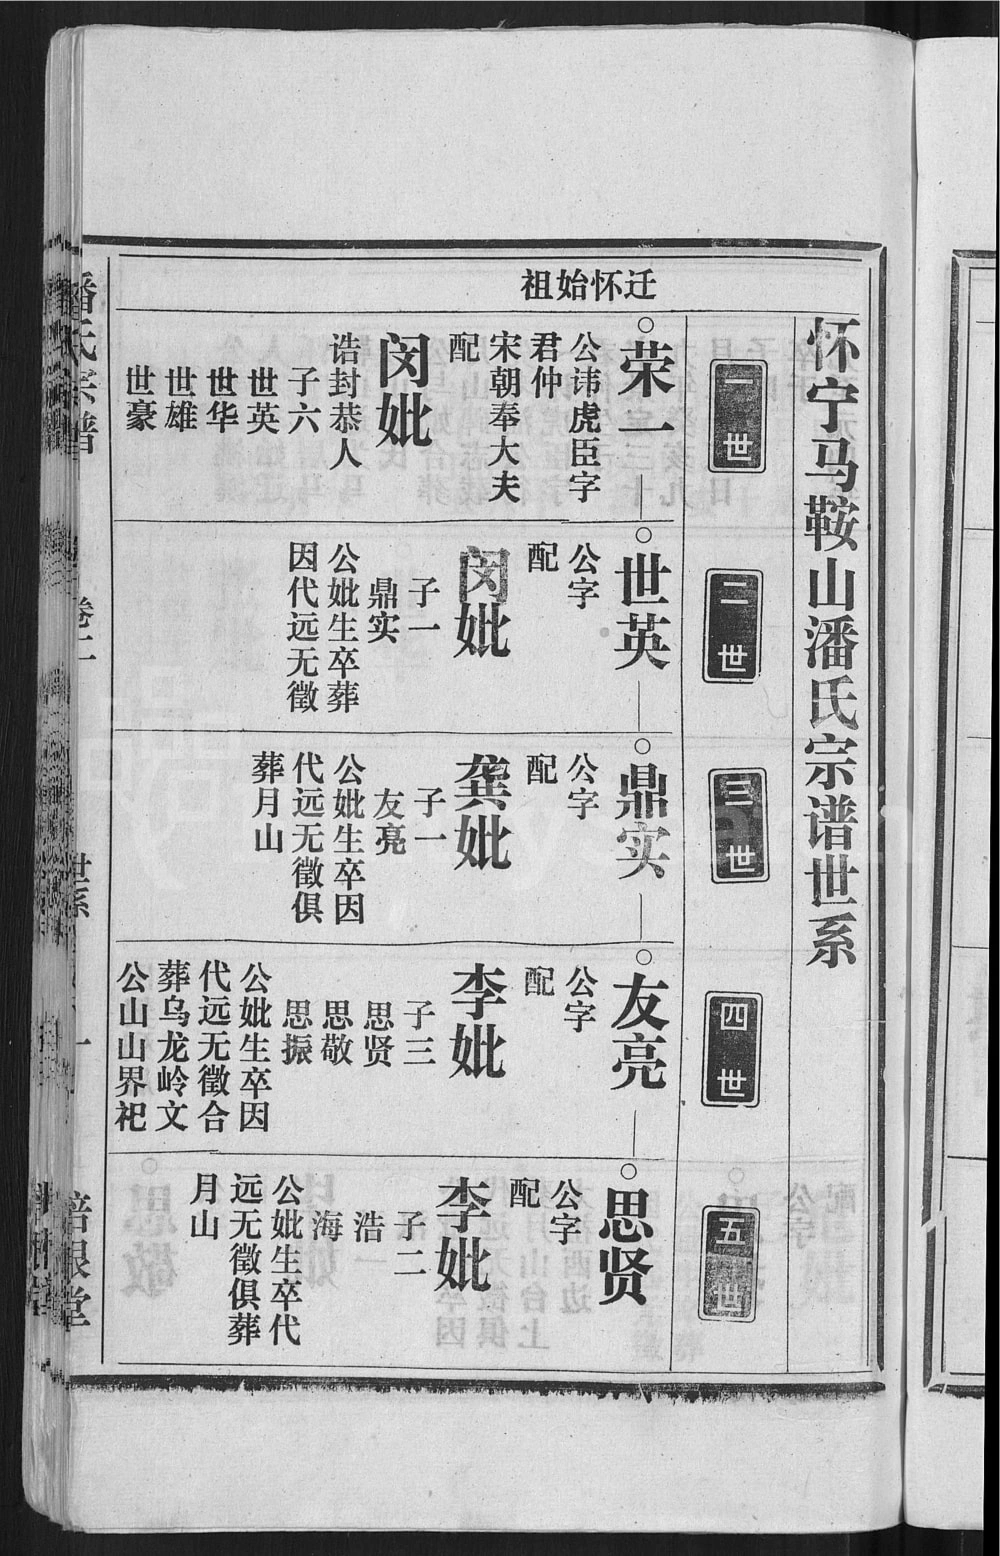 怀宁马鞍山潘氏宗谱世系
一世
二世
三世
四世
五世
迁怀始祖
荣一
公讳虎臣字
君仲
宋朝奉大夫
配
闵妣
诰封恭人
子六
世英
世华
世雄
世豪
世英
公字
配
闵妣
子一
鼎实
公妣生卒葬
因代远无徵
鼎实
公字
配
龚妣
子一
友亮
公妣生卒因
代远无徵俱
葬月山
友亮
公字
配
李妣
子三
思贤
思敬
思振
公妣生卒因
代远无徵合
葬乌龙岭文
公山山界祀
思贤
公字
配
李妣
子二
浩
海
公妣生卒代
远无徵俱葬
月山
潘氏宗谱
卷二
世系
一
培根堂